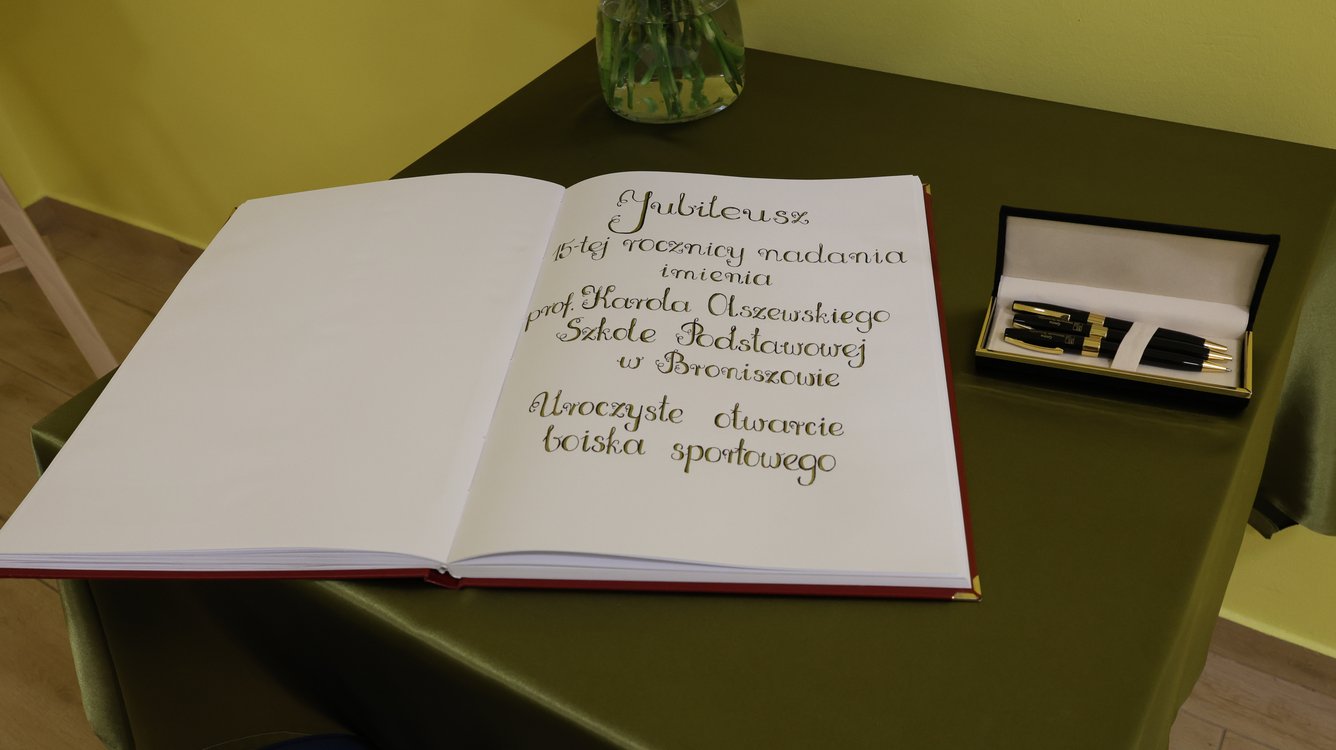 Jubileusz
15-tej rocznicy nadania
imienia
prof. Karola Olszewskiego
Szkole Podstawowej
w Broniszowie
Uroczyste otwarcie
boiska sportowego